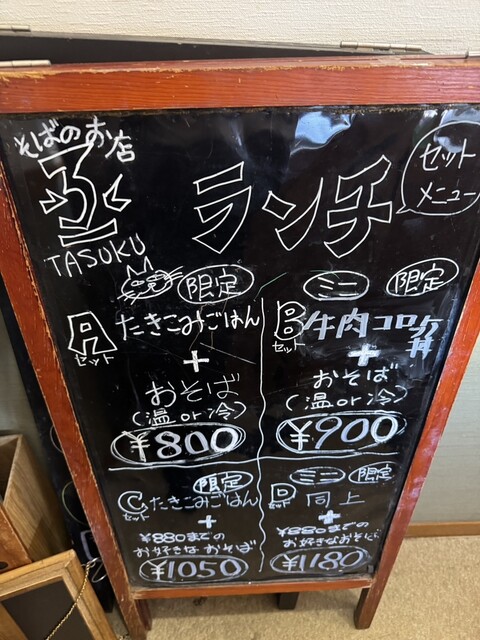 そばのお店
TASUKU
ランチ
セット
メニュー
限定
A
セット
たきこみごはん
+
おそば
(温or冷)
¥800
ミニ
限定
B
セット
牛肉コロッケ丼
+
おそば
(温or冷)
¥900
限定
C
セット
たきこみごはん
+
¥880までの
お好きなおそば
¥1050
ミニ
限定
D
セット
同上
+
¥880までの
お好きなおそば
¥1180